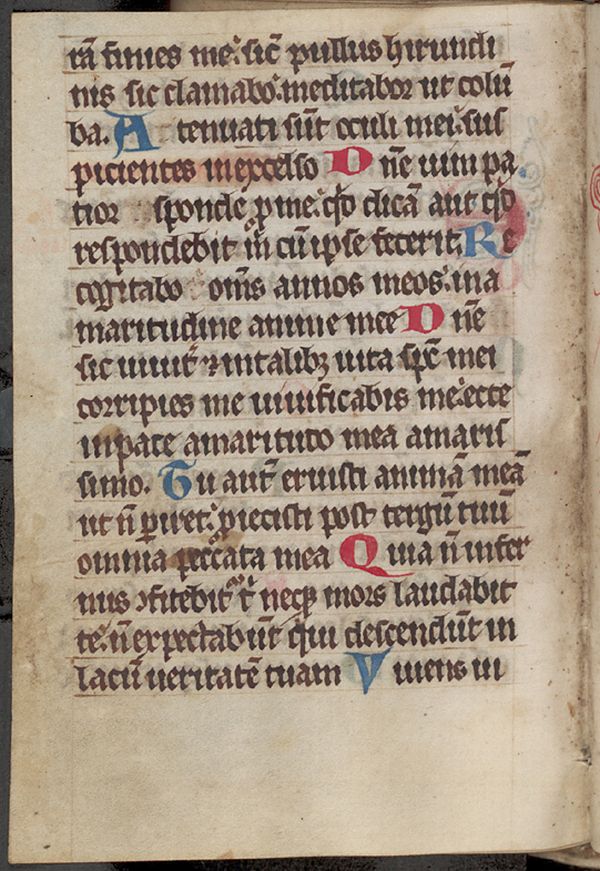 rā finies me. sic̄ pullus hirundi
nis sic clamabo. meditabor ut colū
ba. Attenuati sūt oculi mei. sus
picientes in excelso Dn̄e uim pa
tior sponde p me. qd dicā aut qd
respondebit m̄ cū ipse fecerit. Re
cogitabo oms annos meos. in a
maritudine anime mee Dn̄e
sic uiuit̄ ⁊ in talibꝫ uita spc̄ mei
corripies me uiuificabis me. ecce
in pace amaritudo mea amaris
sima. Tu aut̄ eruisti animā meā
ut n̄ ꝑiret. ꝓiecisti post tergū tuū
omnia peccata mea Quia n̄ infer
nus ꝯfitebit̄ t̄ neqꝫ mors laudabit
te. n̄ expectabūt qui descendūt in
lacū ueritatē tuam Viuens ui